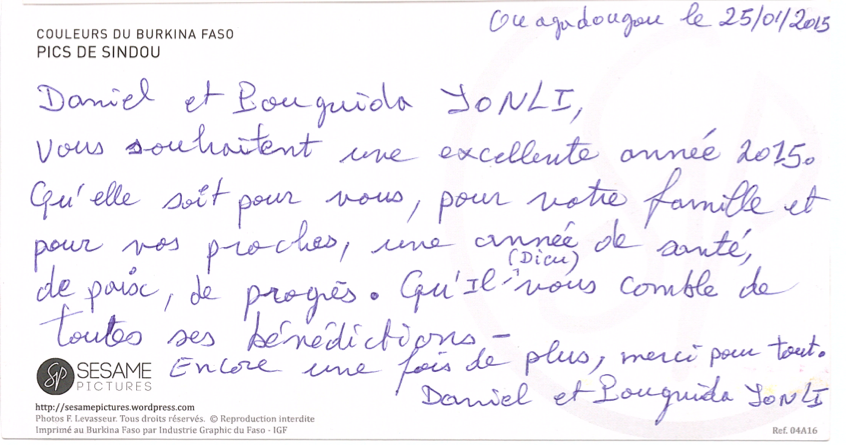 Ouagadougou le 25/01/2015
COULEURS DU BURKINA FASO
PICS DE SINDOU
Daniel et Bouguida YONLI,
vous souhaitent une excellente année 2015.
Qu'elle soit pour vous, pour votre famille et
pour vos proches, une année de santé,
de paix, de progrès. Qu'Il (Dieu) vous comble de
toutes ses bénédictions –
Encore une fois de plus, merci pour tout.
Daniel et Bouguida YONLI
SP SESAME
PICTURES
http://sesamepictures.wordpress.com
Photos F. Levasseur. Tous droits réservés. © Reproduction interdite
Imprimé au Burkina Faso par Industrie Graphic du Faso - IGF
Ref. 04A16